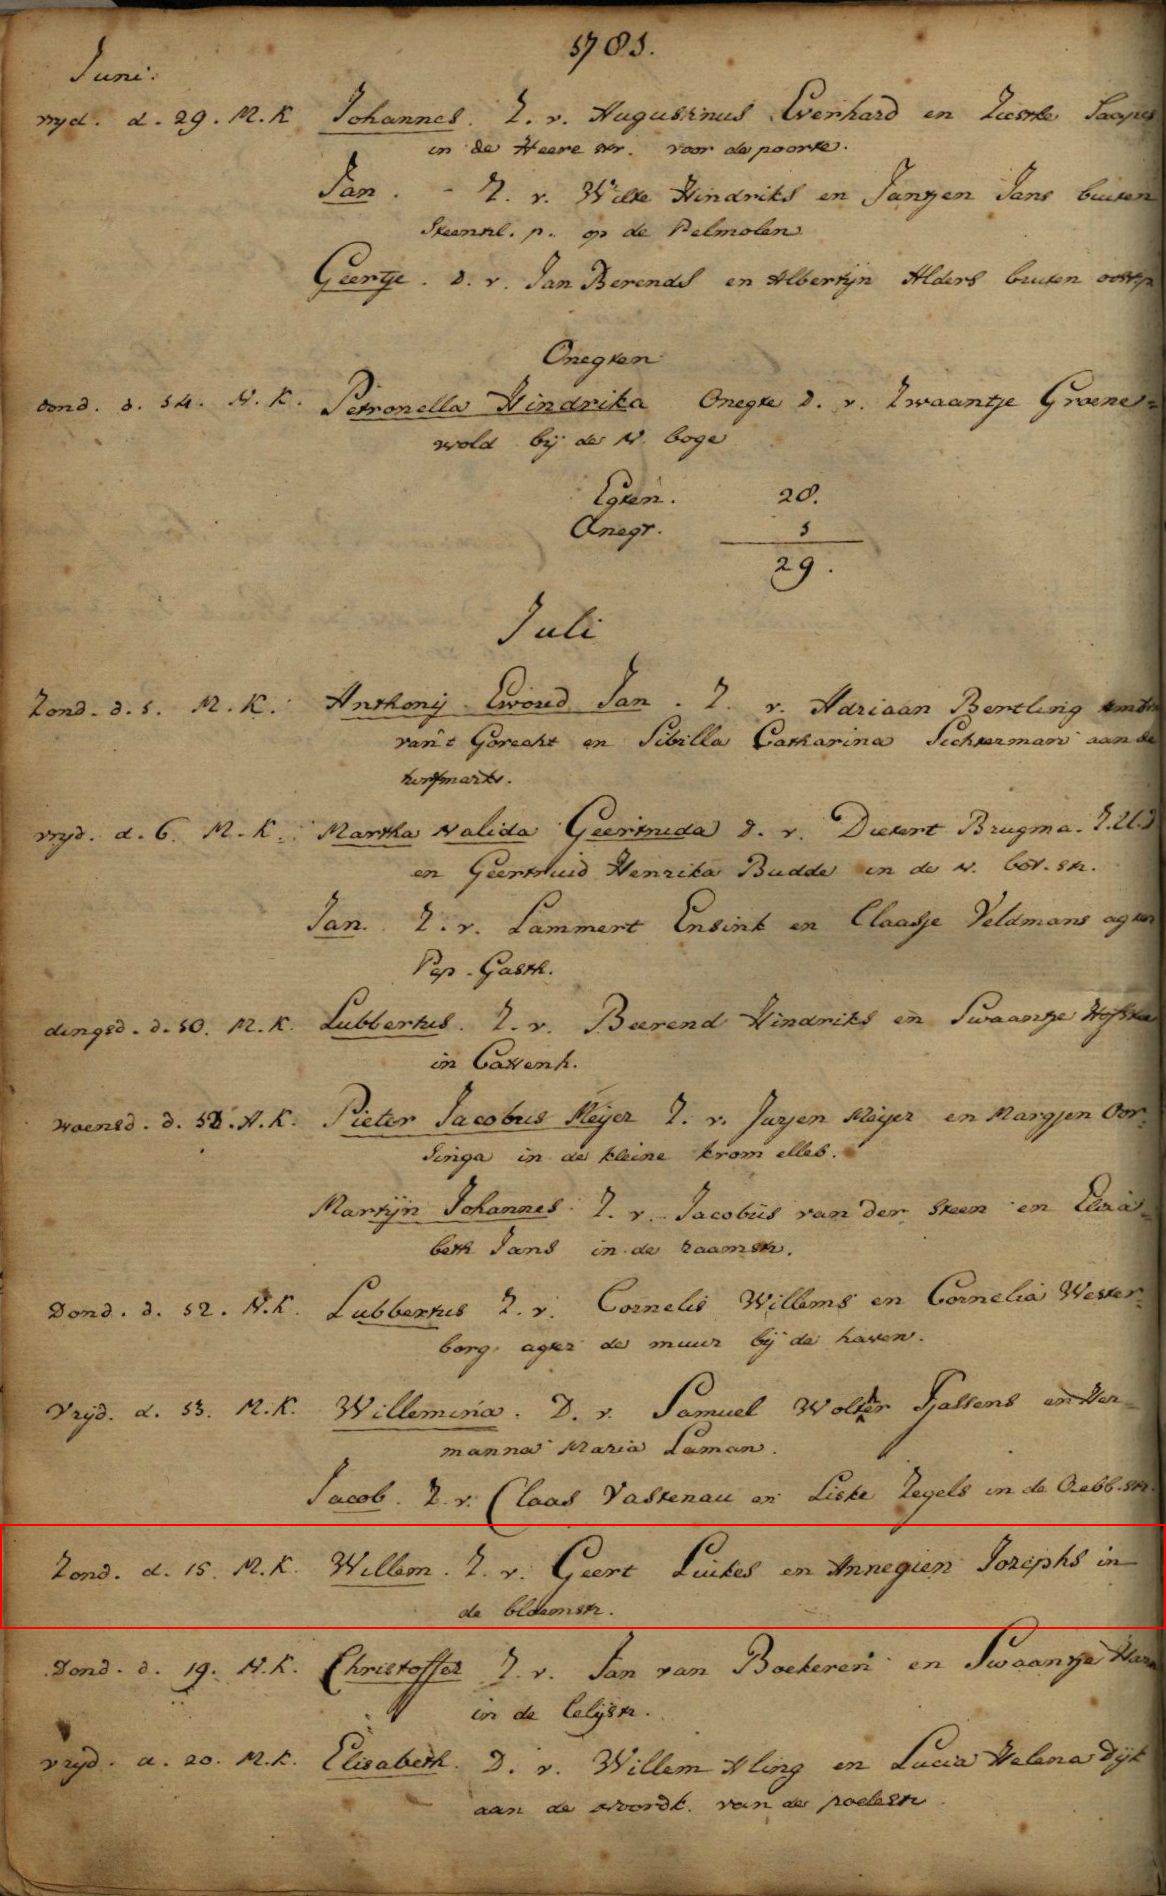 1781.
Juni.
vryd. d. 29. M. K Johannes. Z. v. Augustinus Everhard en Zieske Jaapes
in de Heere str. voor de poorte.
Jan. - Z. v. Wilke Hindriks en Jantjen Jans buiten
Steentil. p. op de Pelmolen
Geertje. D. v. Jan Berends en Albertijn Alders buiten oosterp
Onegten
dond. d. 14. N. K. Petronella Hindrika Onegte D. v. Zwaantje Groene=
wold bij de N. boge
Egten. 28.
Onegt. 1
29.
Juli
Zond. d. 1. M. K. Anthonij Ewoud Jan. Z. v. Adriaan Bertling
van't Gorecht en Sibilla Catharina Sichterman aan de
turfmarkt.
vryd. d. 6. M. K. Martha Nalida Geertruida D. v. Diekert Brugma. J.U.D
en Geertruid Henrika Budde in de N. bot. str.
Jan. Z. v. Lammert Ensink en Claasje Veldmans agter
Pep. Gasth.
dingsd. d. 10. M. K. Lubbertus. Z. v. Beerend Hindriks en Swaantje
in Catrenh.
woensd. d. 11. A. K. Pieter Jacobus Meijer Z. v. Jurjen Meijer en Margjen Oor=
singa in de kleine krom elleb.
Martijn Johannes Z. v. Jacobus van der Steen en Eliza=
beth Jans in de raamstr.
Dond. d. 12. N. K. Lubbertus Z. v. Cornelis Willems en Cornelia Wester=
borg agter de muur bij de haven.
Vrijd. d. 13. M. K. Willemina. D. v. Samuel Wolther Tjassens en Her=
manna Maria Laman.
Jacob. Z. v. Claas Vastenau en Liske Zegels in de Oebb. str.
Zond. d. 15. M. K. Willem. Z. v. Geert Luikes en Annegien Jozephs in
de bloemstr.
Dond. d. 19. N. K. Christoffer Z. v. Jan van Boekeren en Swaantje
in de lelijstr.
vryd. d. 20. M. K. Elisabeth. D. v. Willem Aling en Lucia Helena Dijk
aan de noordk. van de poelestr